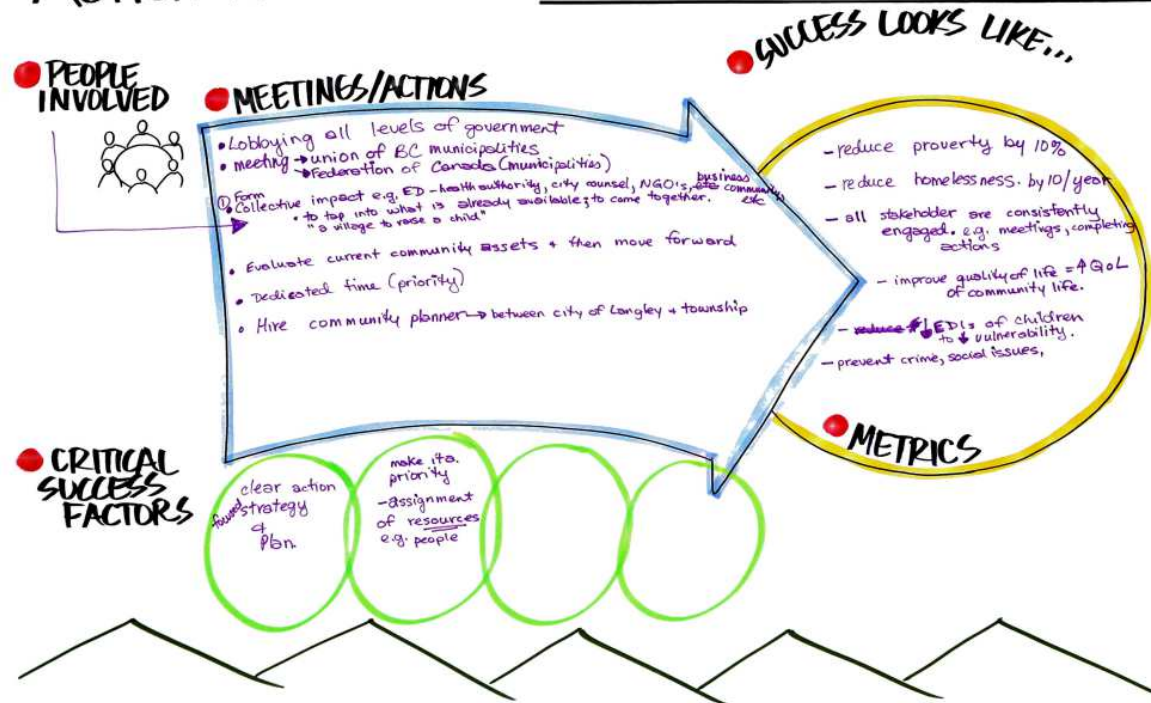 SUCCESS LOOKS LIKE...
PEOPLE
INVOLVED
MEETINGS/ACTIONS
• Lobbying all levels of government
• meeting → union of BC municipalities
→ Federation of Canada (municipalities)
① Form
• Collective impact e.g. ED - health authority, city counsel, NGO's, etc community
business
etc
" to tap into what is already available; to come together.
" a village to raise a child"
• Evaluate current community assets + then move forward
• Dedicated time (priority)
• Hire community planner → between city of Langley + township
- reduce proverty by 10%
- reduce homelessness. by 10/year
- all stakeholder are consistently
engaged. e.g. meetings, completing
actions
- improve quality of life = ↑ QoL
of community life.
- reduce # ↓ EDIs of children
to ↓ vulnerability.
- prevent crime, social issues,
METRICS
CRITICAL
SUCCESS
FACTORS
clear action
focused strategy
&
Plan.
make it a
priority
- assignment
of resources
e.g. people